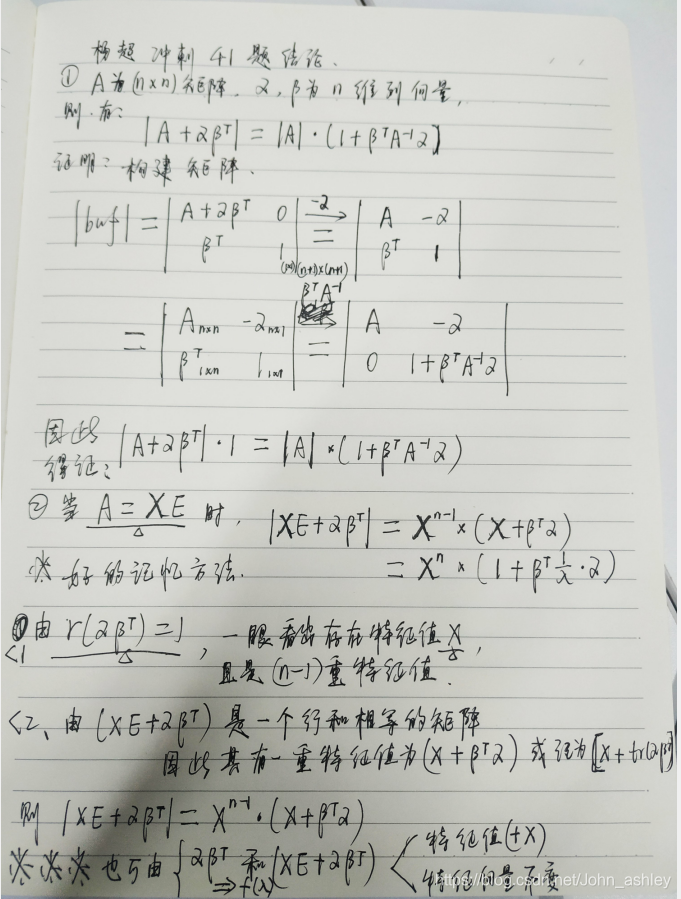 杨超冲刺41题结论.
① A为(n×n)矩阵. α, β为n维列向量,
则.有:
|A+αβᵀ| = |A|·(1+βᵀA⁻¹α)
证明: 构建矩阵.
|buf| = | A+αβᵀ 0 | -α → = | A -α |
| βᵀ 1 | (n+1)×(n+1) | βᵀ 1 |
= | Aₙₓₙ -αₙₓ₁ | βᵀA⁻¹ = | A -α |
| βᵀ₁ₓₙ 1₁ₓ₁ | | 0 1+βᵀA⁻¹α |
因此
得证: |A+αβᵀ|·1 = |A|×(1+βᵀA⁻¹α)
② 当 A=XE 时, |XE+αβᵀ| = Xⁿ⁻¹×(X+βᵀα)
※ 好的记忆方法. = Xⁿ×(1+βᵀ1/X·α)
由 r(αβᵀ)=1, 一眼看出存在特征值X,
<1 且是(n-1)重特征值.
<2、由(XE+αβᵀ)是一个行和相等的矩阵
因此其有一重特征值为(X+βᵀα)或记为[X+tr(αβᵀ)
则 |XE+αβᵀ| = Xⁿ⁻¹·(X+βᵀα)
※※※ 也可由 { αβᵀ 和 (XE+αβᵀ) < 特征值(+X)
⇒f(λ) 特征向量不变
https://blog.csdn.net/John_ashley